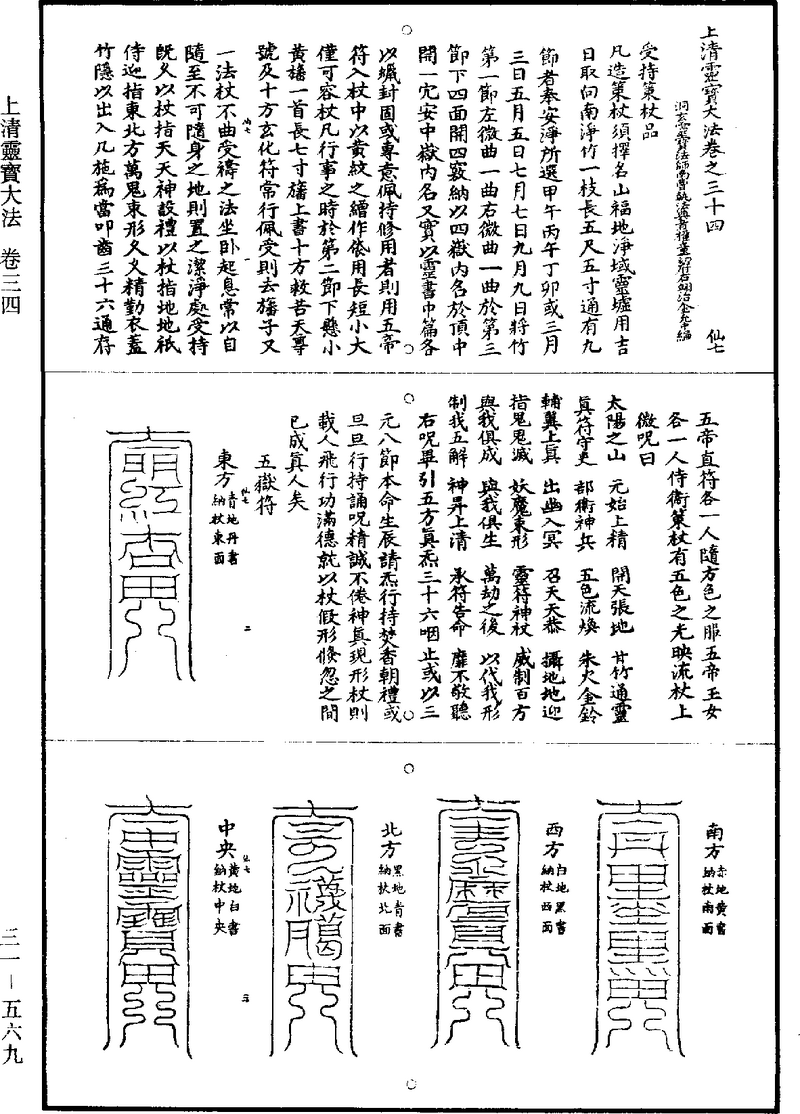 上清靈寶大法卷之三四
洞玄靈寶法師南曹執法典者權童初府右翊治金允中編
仙七
受持策杖品
凡造策杖須擇名山福地淨域靈墟用吉
日取向南淨竹一枝長五尺五寸通有九
節者奉安淨所選甲午丙午丁卯或三月
三日五月五日七月七日九月九日將竹
第一節左微曲一曲右微曲一曲於第三
節下四面開四竅納以四嶽內名於頂中
開一穴安中嶽內名又實以靈書中篇各
以蠟封固或專意佩持修用者則用五帝
符入杖中以黃紋之繒作俵用長短小大
僅可容杖凡行事之時於第二節下懸小
黃旛一首長七寸旛上書十方救苦天尊
號及十方玄化符常行佩受則去旛子又
一法杖不曲受禱之法坐臥起息常以自
隨至不可隨身之地則置之潔淨處受持
既久以杖指天天神設禮以杖指地地祇
侍迎指東北方萬鬼束形久久精勤衣蓋
竹隱以出入凡施爲當叩齒三十六通存
五帝直符各一人隨方色之服五帝玉女
各一人侍衛策杖有五色之光映流杖上
微呪曰
太陽之山 元始上精 開天張地 甘竹通靈
眞符守吏 部衛神兵 五色流煥 朱火金鈴
輔翼上眞 出幽入冥 召天天恭 攝地地迎
指鬼鬼滅 妖魔束形 靈符神杖 威制百方
與我俱成 與我俱生 萬劫之後 以代我形
制我五解 神昇上清 承符告命 靡不敬聽
右呪畢引五方眞炁三十六咽止或以三
元八節本命生辰請炁行持焚香朝禮或
旦旦行持誦呪精誠不倦神眞現形杖則
載人飛行功滿德就以杖假形倏忽之間
已成眞人矣
五嶽符
東方 青地丹書 納杖東面
仙七
二
南方 赤地黃書 納杖南面
西方 白地黑書 納杖西面
北方 黑地青書 納杖北面
中央 黃地白書 納杖中央
仙七
三
上清靈寶大法 卷三四
三一—五六九